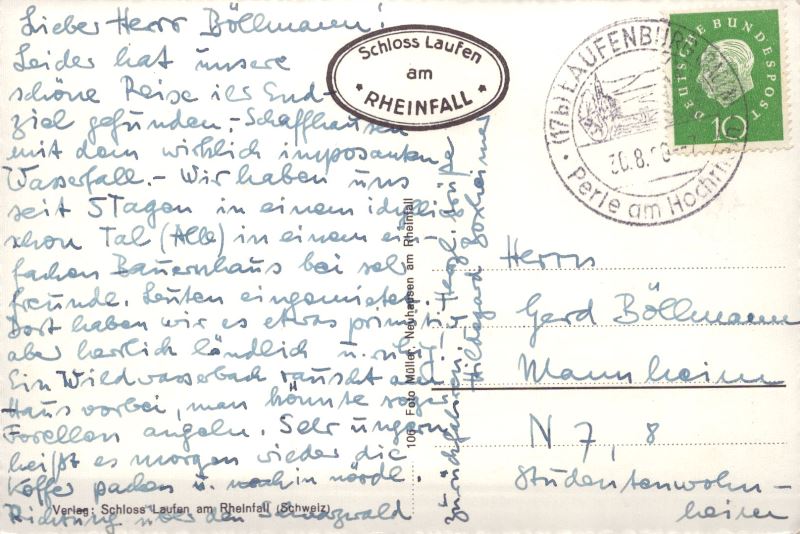 Lieber Herr Böllmann!
Leider hat unsere
schöne Reise ihr End-
ziel gefunden,- Schaffhausen
mit dem wirklich imposanten
Wasserfall.- Wir haben uns
seit 5 Tagen in einem idylli-
schen Tal (Alb) in einem ein-
fachen Bauernhaus bei sehr
freundl. Leuten eingemietet.
Dort haben wir es etwas primitiv
aber herrlich ländlich u. ruhig.
Ein Wildwasserbach rauscht am
Haus vorbei, man könnte sogar
Forellen angeln. Sehr ungern
heißt es morgen wieder die
Koffer packen u. noch in nördl.
Richtung über den Schwarzwald
zurückfahren. Herzl. Grüße
Hildegard
Schloss Laufen
am
* RHEINFALL *
(17b) LAUFENBURG
30.8.
Perle am Hochrhein
DEUTSCHE BUNDESPOST
10
Herrn
Gerd Böllmann
Mannheim
N 7, 8
Studentenwohn-
heim
106 Foto Müller, Neuhausen am Rheinfall
Verlag: Schloss Laufen am Rheinfall (Schweiz)